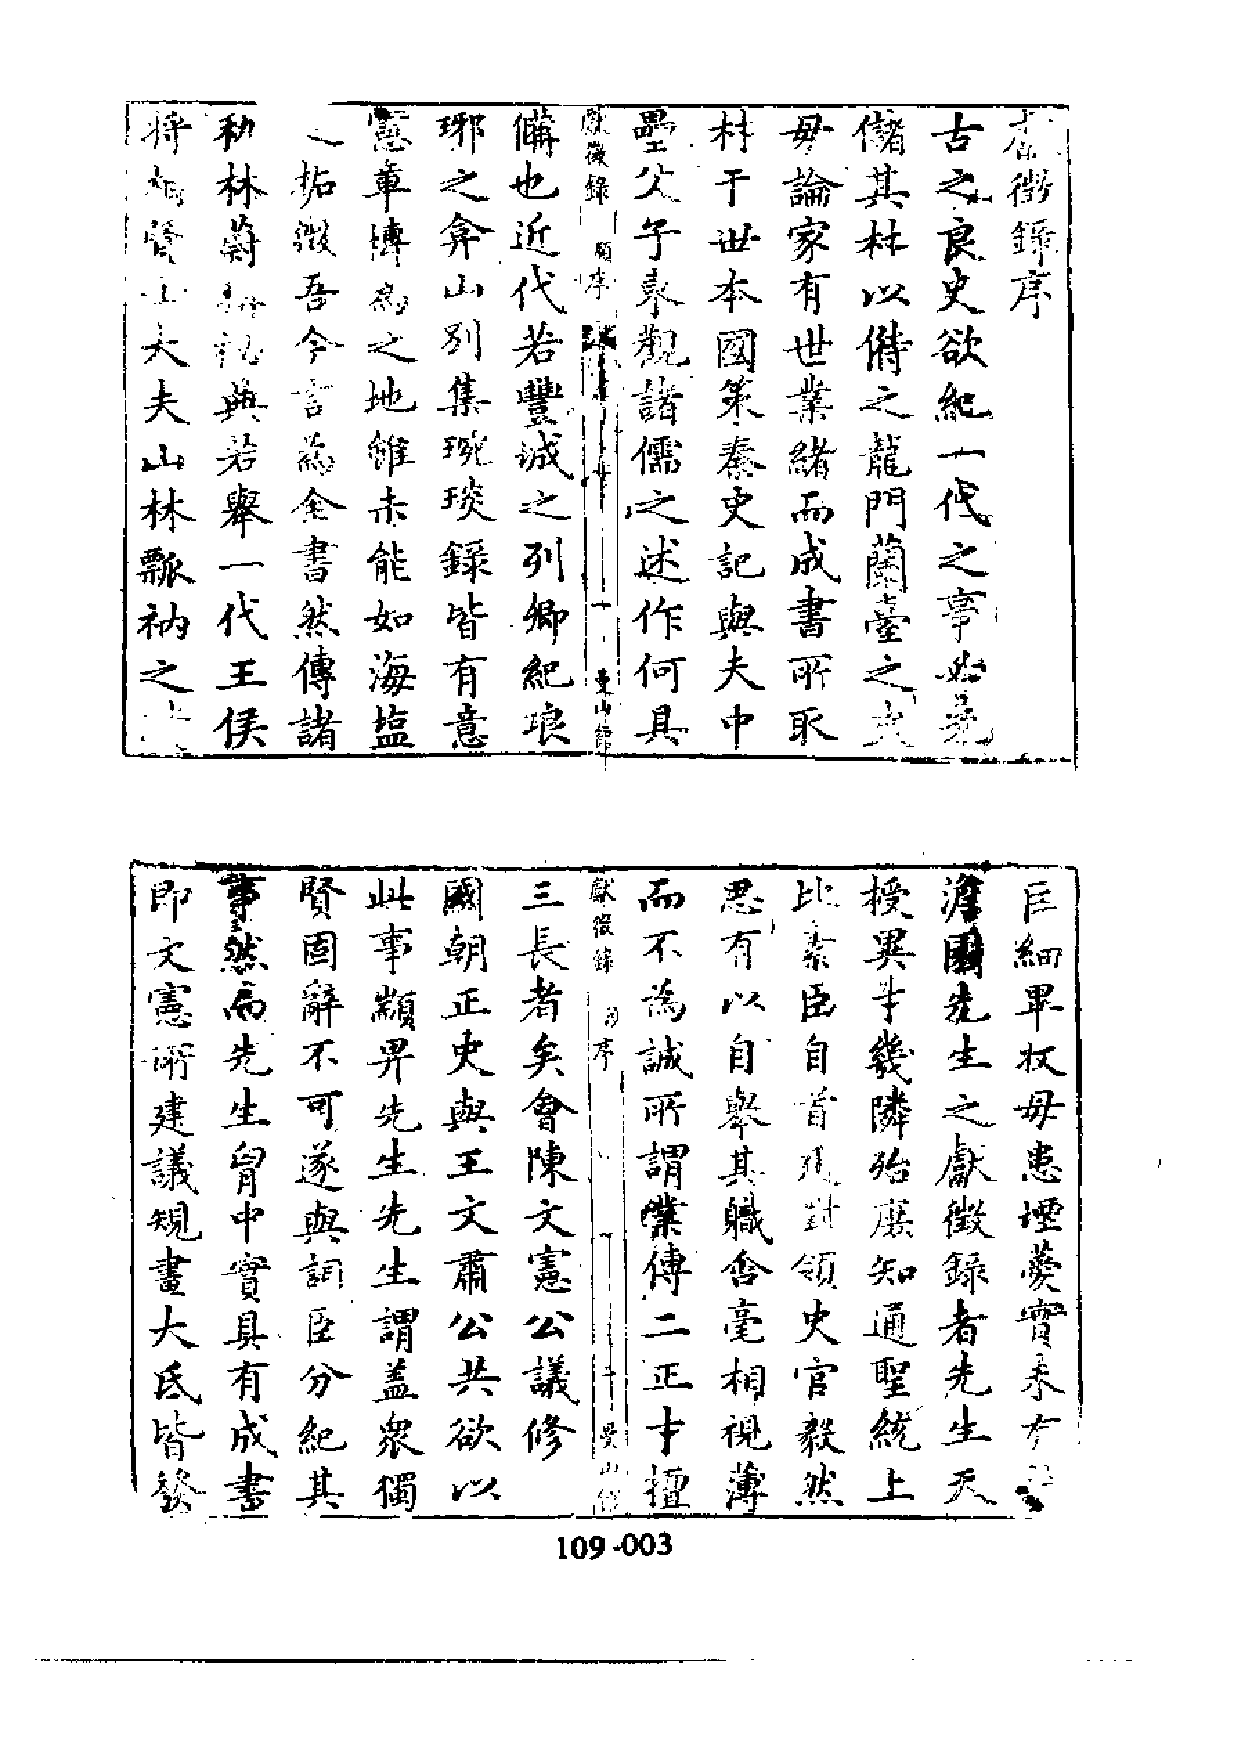 徵錄序
古之良史欲紀一代之事必先
儲其材以偹之龍門蘭臺之史
毋論家有世業緒而成書所取
材于世本國策秦史記與夫中
壘父子東觀諸儒之述作何具
獻徵錄 顧序 曼山館
備也近代若豐城之列卿紀琅
琊之弇山别集琬琰錄皆有意
憲章博為之地雖未能如海塩
之 拓徵吾今言為全書然傳諸
秇林蔚 秘典若舉一代王侯
將相賢士大夫山林瓢衲之
巨細畢收毋患堙薆實未有
澹園先生之獻徵錄者先生天
授異才幾隣殆庶知通聖統上
比素臣自首廷對領史官毅然
思有以自舉其職吞毫相視薄
而不為誠所謂業傳二正才擅
獻徵錄 序 曼山館
三長者矣會陳文憲公議修
國朝正史與王文肅公共欲以
此事顓畀先生先生謂盖衆獨
賢固辭不可遂與詞臣分紀其
事然而先生胷中實具有成書
即文憲所建議規畫大氐皆發
109-003